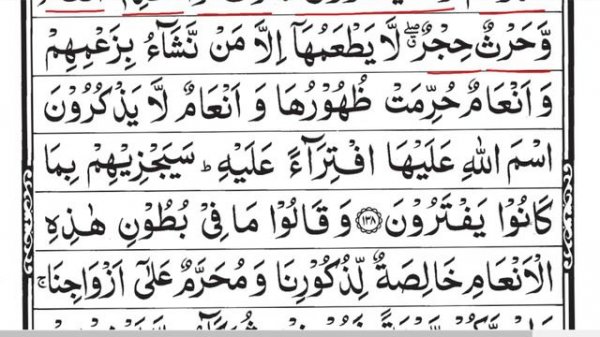 وَّحَرْثٌ حِجْرٌ ۖ لَّا يَطْعَمُهَاۤ اِلَّا مَنْ نَّشَآءُ بِزَعْمِهِمْ
وَ اَنْعَامٌ حُرِّمَتْ ظُهُوْرُهَا وَ اَنْعَامٌ لَّا يَذْكُرُوْنَ
اسْمَ اللّٰهِ عَلَيْهَا افْتِرَآءً عَلَيْهِ ؕ سَيَجْزِيْهِمْ بِمَا
كَانُوْا يَفْتَرُوْنَ ۝۱۳۸ وَ قَالُوْا مَا فِيْ بُطُوْنِ هٰذِهِ
الْاَنْعَامِ خَالِصَةٌ لِّذُكُوْرِنَا وَ مُحَرَّمٌ عَلٰۤى اَزْوَاجِنَا ۚ